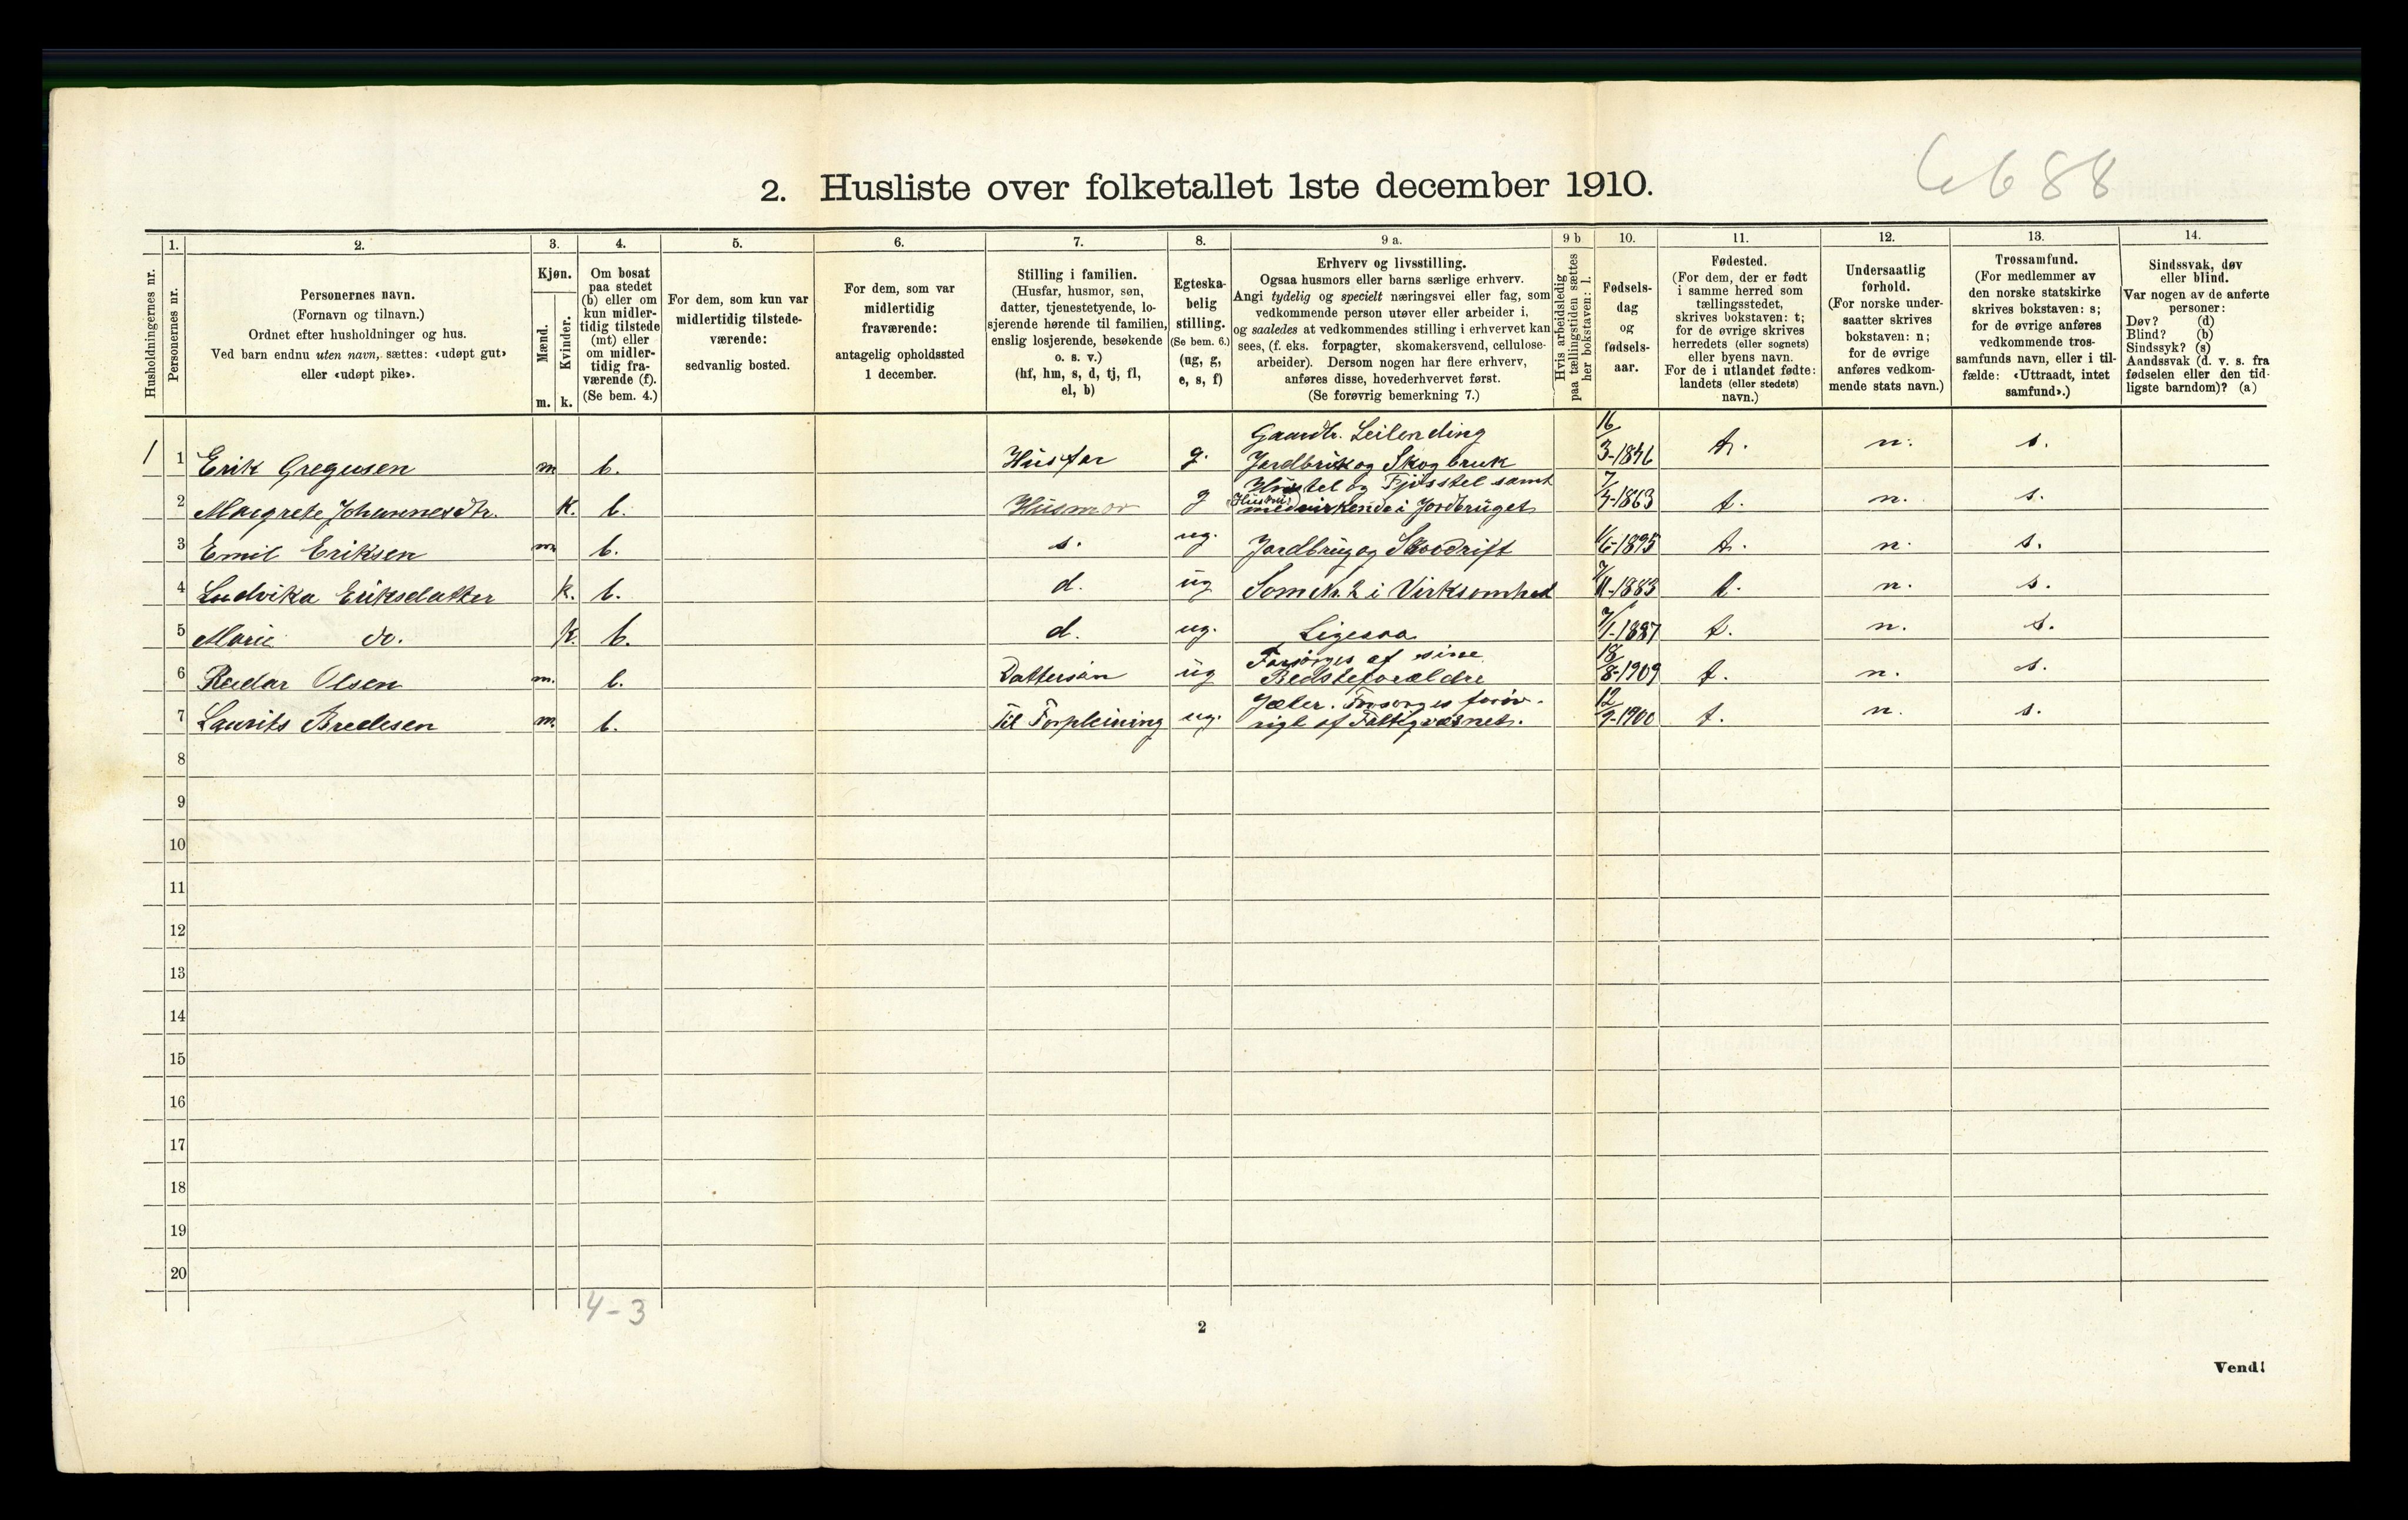 6688
2. Husliste over folketallet 1ste december 1910.
Husholdningernes nr.
1.
Personernes nr.
2.
Personernes navn.
(Fornavn og tilnavn.)
Ordnet efter husholdninger og hus.
Ved barn endnu uten navn, sættes: «udøpt gut»
eller «udøpt pike».
3.
Kjøn.
Mænd.
Kvinder.
m. k.
4.
Om bosat
paa stedet
(b) eller om
kun midler-
tidig tilstede
(mt) eller
om midler-
tidig fra-
værende (f).
(Se bem. 4.)
5.
For dem, som kun var
midlertidig tilstede-
værende:
sedvanlig bosted.
6.
For dem, som var
midlertidig
fraværende:
antagelig opholdssted
1 december.
7.
Stilling i familien.
(Husfar, husmor, søn,
datter, tjenestetyende, lo-
sjerende hørende til familien,
enslig losjerende, besøkende
o. s. v.)
(hf, hm, s, d, tj, fl,
el, b)
8.
Egteska-
belig
stilling.
(Se bem. 6.)
(ug, g,
e, s, f)
9 a.
Erhverv og livsstilling.
Ogsaa husmors eller barns særlige erhverv.
Angi tydelig og specielt næringsvei eller fag, som
vedkommende person utøver eller arbeider i,
og saaledes at vedkommendes stilling i erhvervet kan
sees, (f. eks. forpagter, skomakersvend, cellulose-
arbeider). Dersom nogen har flere erhverv,
anføres disse, hovederhvervet først.
(Se forøvrig bemerkning 7.)
9 b
Hvis arbeidsledig
paa tællingstiden sættes
her bokstaven: l.
10.
Fødsels-
dag
og
fødsels-
aar.
11.
Fødested.
(For dem, der er født
i samme herred som
tællingsstedet,
skrives bokstaven: t;
for de øvrige skrives
herredets (eller sognets)
eller byens navn.
For de i utlandet fødte:
landets (eller stedets)
navn.)
12.
Undersaatlig
forhold.
(For norske under-
saatter skrives
bokstaven: n;
for de øvrige
anføres vedkom-
mende stats navn.)
13.
Trossamfund.
(For medlemmer av
den norske statskirke
skrives bokstaven: s;
for de øvrige anføres
vedkommende tros-
samfunds navn, eller i til-
fælde: «Uttraadt, intet
samfund».)
14.
Sindssvak, døv
eller blind.
Var nogen av de anførte
personer:
Døv? (d)
Blind? (b)
Sindssyk? (s)
Aandssvak (d. v. s. fra
fødselen eller den tid-
ligste barndom)? (a)
1 1 Erik Gregusen m b. Husfar g. Gaardbr. Leilending
Jordbruk og Skogbruk 16/3-1846 t. n. s.
2 Margrete Johannesdtr. k. b. Husmor g Hustel og Fjøsstel samt
medvirkende i Jordbruget 7/4-1863 t. n. s.
3 Emil Eriksen m b. s. ug. Jordbrug og Skovdrift 1895 t. n. s.
4 Ludvika Eriksdatter k. b. d. ug Som Nr. 2 i Virksomhed 11-1883 t. n. s.
5 Marie do. k. b. d. ug. Ligesaa 1-1887 t. n. s.
6 Reidar Olsen m. b. Dattersøn ug Forsørges af sine
Bedsteforældre 18/8-1909 t. n. s.
7 Laurits Bredesen m. b. Til Forpleining ug. Jæter. Forsørges forøv-
rigt af Fattigvæsnet. 12/9-1900 t. n. s.
8
9
10
11
12
13
14
15
16
17
18
19
20
4-3
2
Vend!